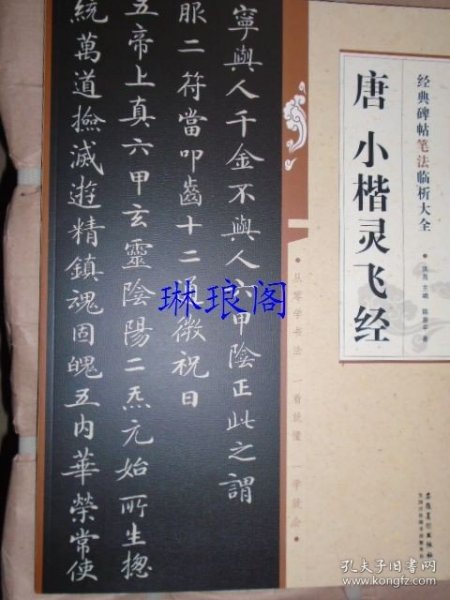 经典碑帖笔法临析大全
唐 小楷灵飞经
寧與人千金不與人六甲陰正此之謂
服二符當叩齒十二通微祝曰
五帝上真六甲玄靈陰陽二炁元始所生揔
統萬道撿滅遊精鎮魂固魄五内華榮常使
从零学书法 一看就懂 一学就会
琳琅阁
安徽美术出版社
孔夫子旧书网
www.kongfz.com